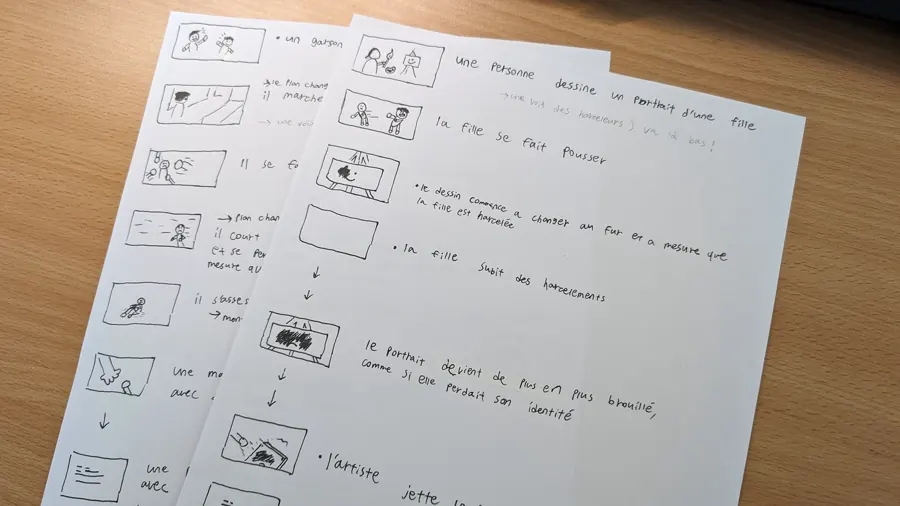 • un garson
→ le plan chang
il marche
→ une
Il se fa
→ plan chan
il court
et se per
mesure qu
il s'asses
→ mon
une ma
avec
une
avec
une personne dessine un portrait d'une fille
→ une voit des harceleurs) va là bas!
la fille se fait pousser
• le dessin commence a changer au fur et a mesure que
la fille est harcelée
• la fille subit des harcelements
le portrait devient de plus en plus brouillé,
comme si elle perdait son identité
• l'artiste
jette